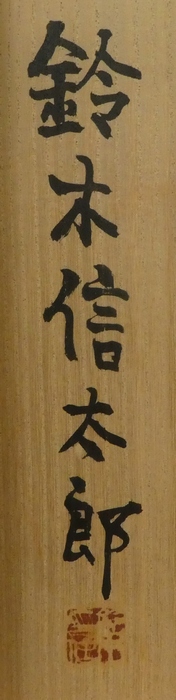 鈴木信太郎